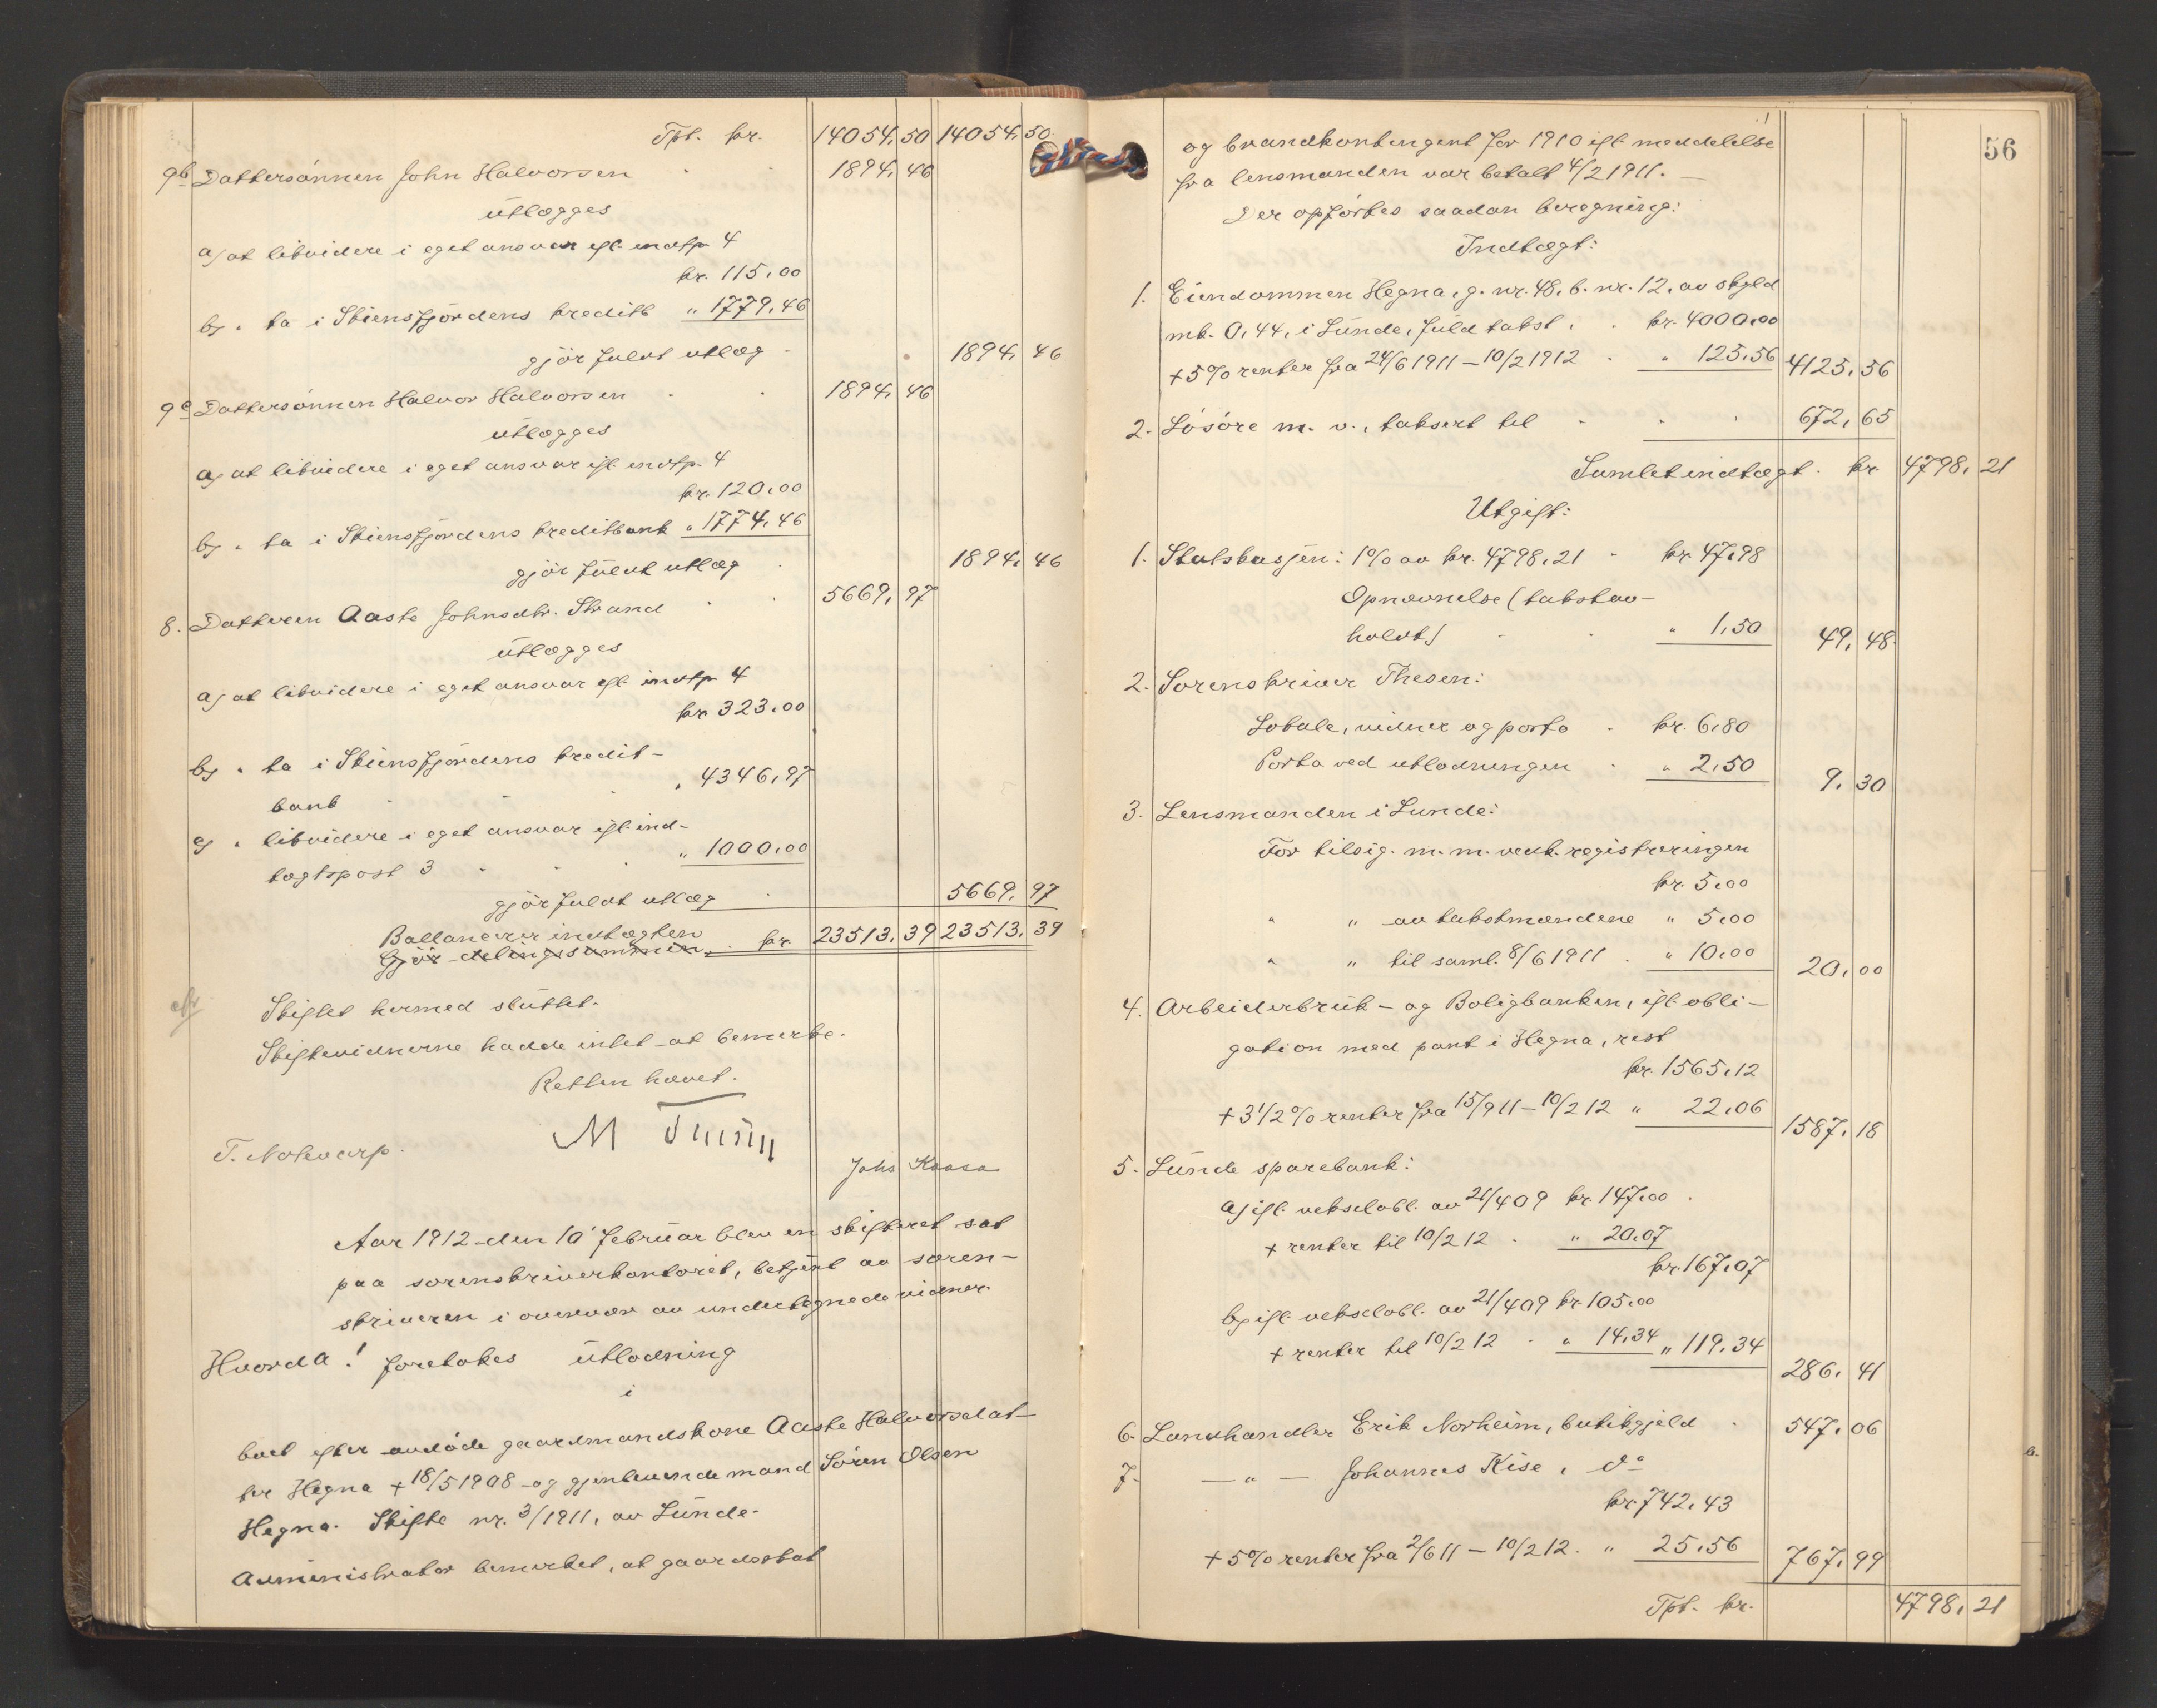 Tpt. kr. 14054,50 14054,50
9b Dattersønnen John Halvorsen 1894,46
utlægges
a) at likvidere i eget ansvar ifl. indtp 4
kr. 115,00
b) " ta i Skiensfjordens kreditb " 1779,46
gjør fuldt utlæg 1894,46
9c Dattersønnen Halvor Halvorsen 1894,46
utlægges
a) at likvidere i eget ansvar ifl. indtp. 4
kr. 120,00
b) " ta i Skiensfjordens kreditbank " 1774,46
gjør fuldt utlæg 1894,46
8. Datteren Aaste Johnsdtr. Strand 5669,97
utlægges
a) at likvidere i eget ansvar ifl. indtp 4
kr. 323,00
b) " ta i Skiensfjordens kredit-
bank " 4346,97
c) " likvidere i eget ansvar ifl. ind-
tægtspost 3 " 1000,00
gjør fuldt utlæg 5669,97
Ballancerer indtægten
Gjør delingssummen. kr. 23513,39 23513,39
Skiftet hermed sluttet.
Skiftevidnerne hadde intet at bemerke.
Retten hævet.
T. Notevarp. Johs Kaasa
Aar 1912 den 10' februar blev en skifteret sat
paa sorenskriverkontoret, betjent av soren-
skriveren i overvær av undertegnede vidner.
Hvorda! foretokes utlodning
i
boet efter avdøde gaardmandskone Aaste Halvorsdat-
ter Hegna + 18/5 1908 og gjenlevende mand Søren Olsen
Hegna. Skifte nr. 3/1911, av Lunde.
Administrator bemerket, at gaardsskat
56
og brandkontingent for 1910 ifl. meddelelse
fra lensmanden var betalt 4/2 1911. —
Der opførtes saadan beregning:
Indtægt:
1. Eiendommen Hegna, g. nr. 48, b. nr. 12, av skyld
mk. 0,44, i Lunde, fuld takst, kr. 4000,00
+ 5% renter fra 24/6 1911 — 10/2 1912 " 125,56 4125,56
2. Løsøre m. v., taksert til 672,65
Samlet indtægt kr. 4798,21
Utgift:
1. Statskassen: 1% av kr. 4798,21 - kr. 47,98
Opnævnelse (takstav-
holdt) " 1,50 49,48
2. Sorenskriver Thesen:
Lokale, vidner og porto kr. 6,80
Porto ved utlodningen " 2,50 9,30
3. Lensmanden i Lunde:
For tilsig. m. m. vedk. registreringen
kr. 5,00
" " av takstmændene " 5,00
" " til saml. 8/6 1911 " 10,00 20,00
4. Arbeiderbruk- og Boligbanken, ifl. obli-
gation med pant i Hegna, rest
kr. 1565,12
+ 3 1/2 % renter fra 15/9 11 — 10/2 12 " 22,06 1587,18
5. Lunde sparebank:
a) ifl. vekselobl. av 21/4 09 kr. 147,00
+ renter til 10/2 12 " 20,07
kr. 167,07
b) ifl. vekselobl. av 21/4 09 kr. 105,00
+ renter til 10/2 12 " 14,34 " 119,34
286,41
6. Landhandler Erik Norheim, butikgjeld 547,06
7. — " — Johannes Kise, do
kr. 742,43
+ 5% renter fra 2/6 11 — 10/2 12 " 25,56 767,99
Tpt. kr. 4798,21